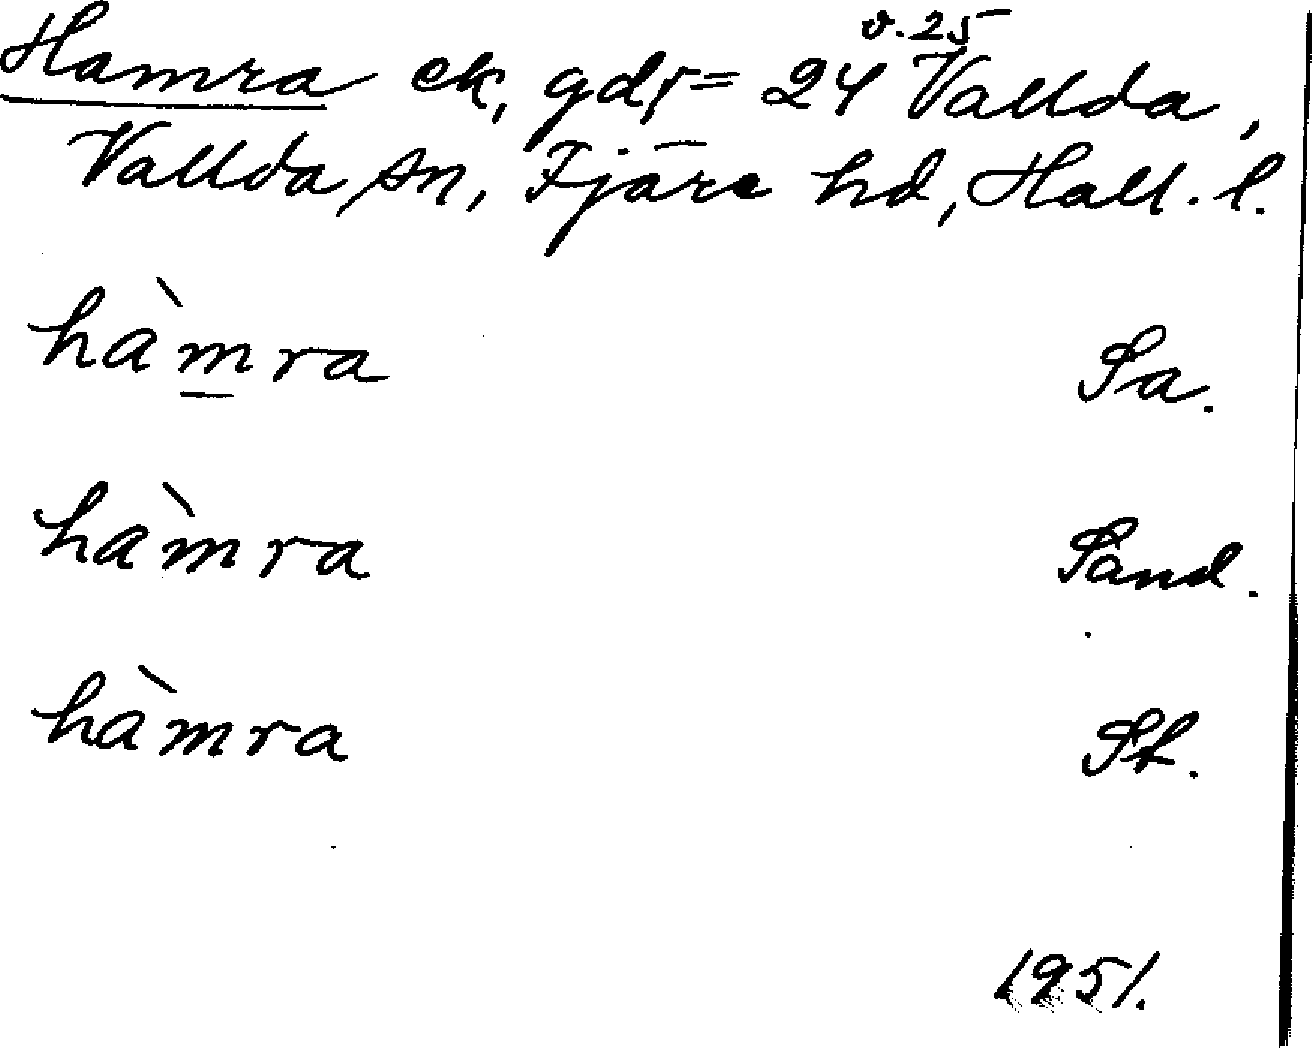 Hamra ek, gdr = 24 o. 25 Vallda,
Vallda sn, Fjäre hd, Hall. l.
hàmra Sa.
hàmra Sand.
hàmra St.
1951.